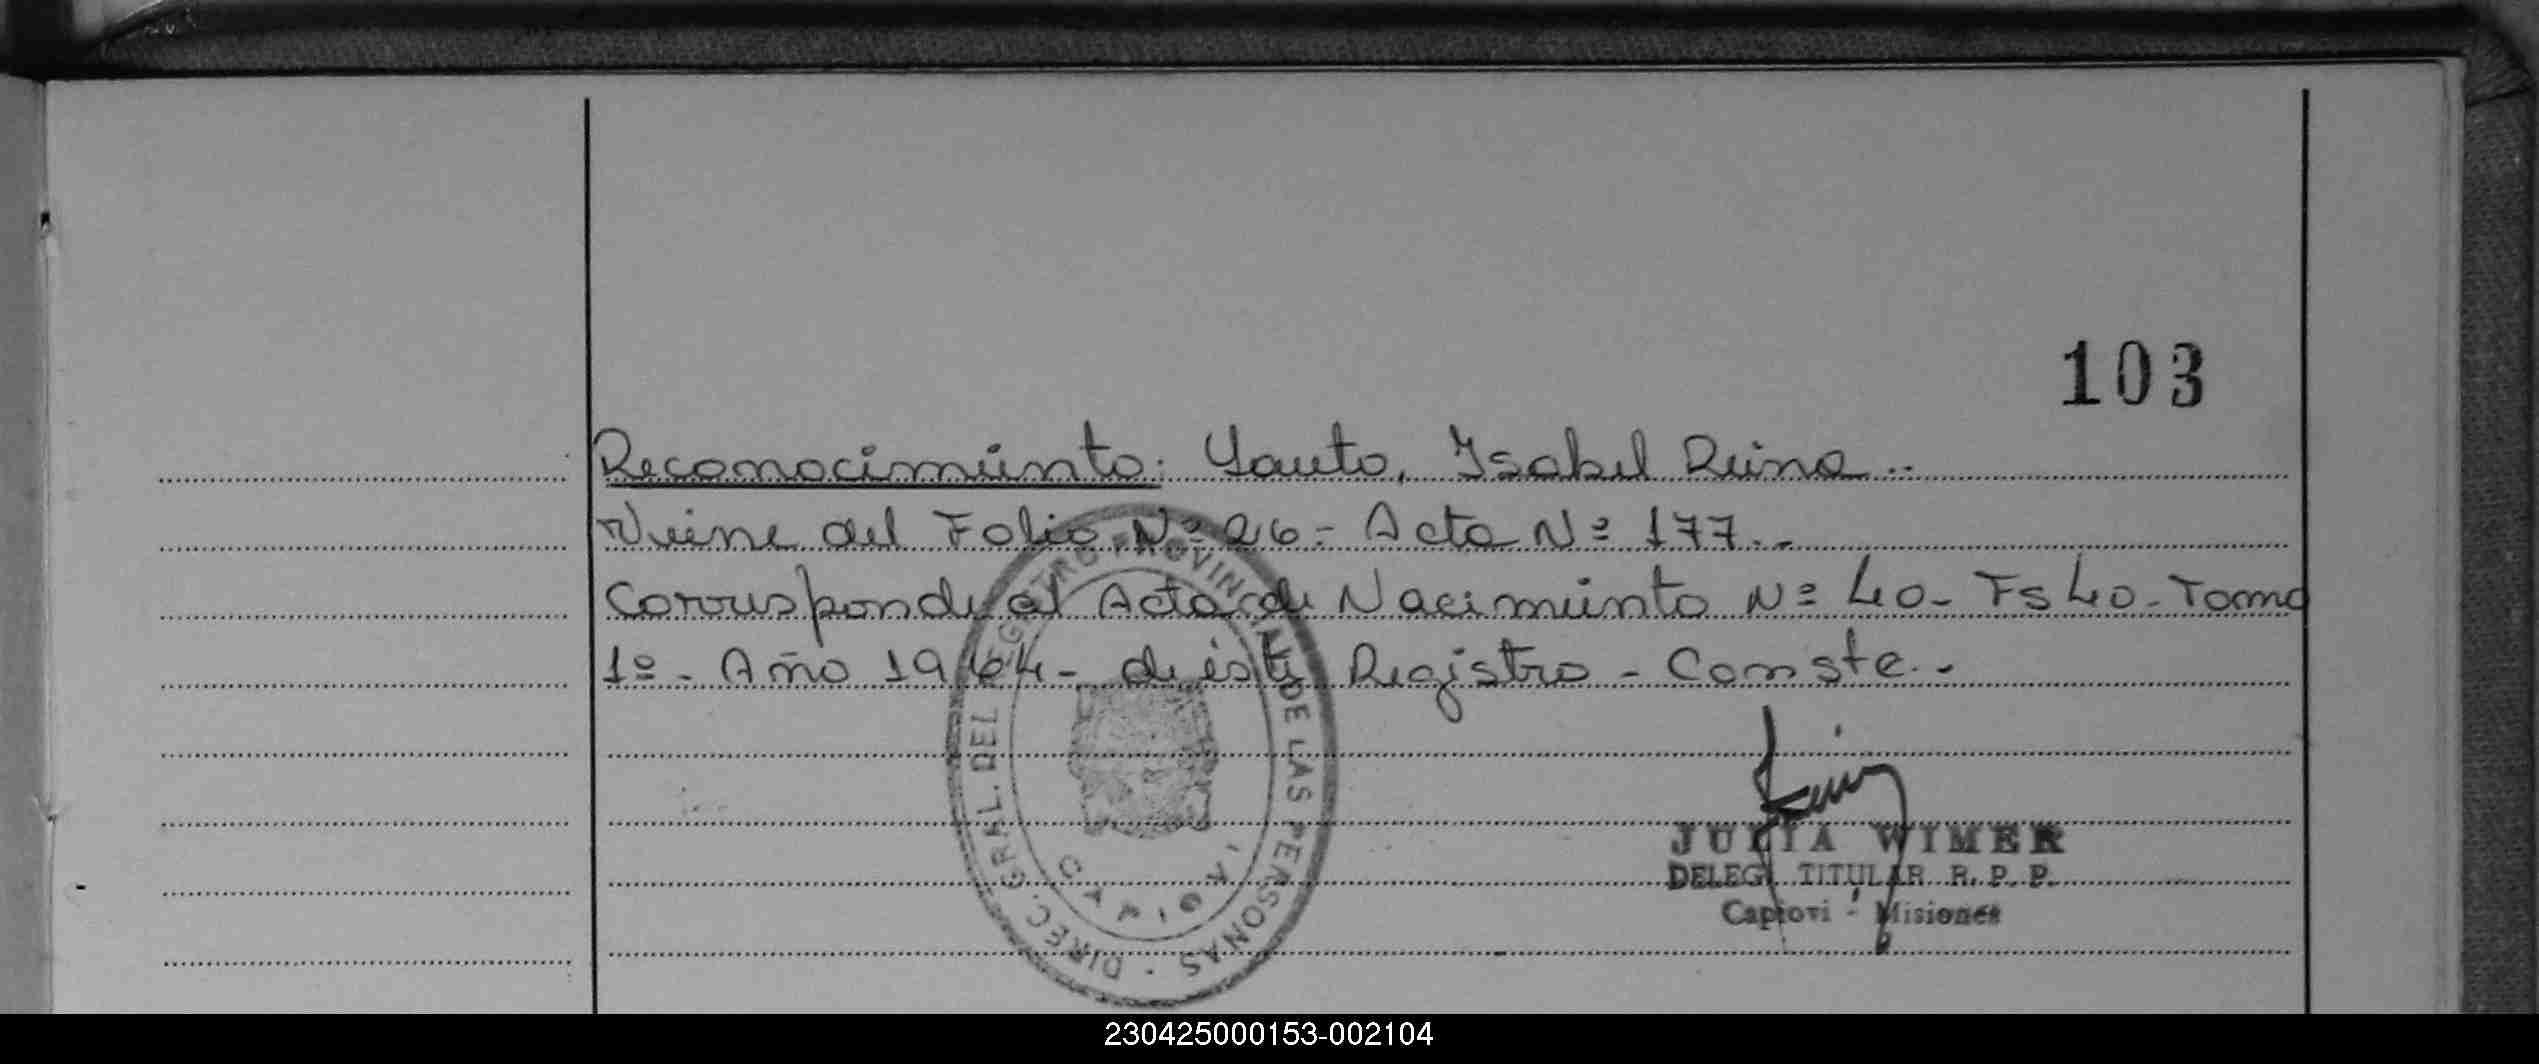 103
Reconocimiento: Sauto, Isabel Reina.-
Viene del Folio Nº 26 - Acta Nº 177.-
Corresponde al Acta de Nacimiento Nº 40 - Fs 40 - Tomo
1º - Año 1964 - de éste Registro - Conste.-
DIREC. GRAL. DEL REGISTRO PROVINCIAL DE LAS PERSONAS -
CAPIOVI
JULIA WIMER
DELEG. TITULAR R. P. P.
Capiovi - Misiones
230425000153-002104